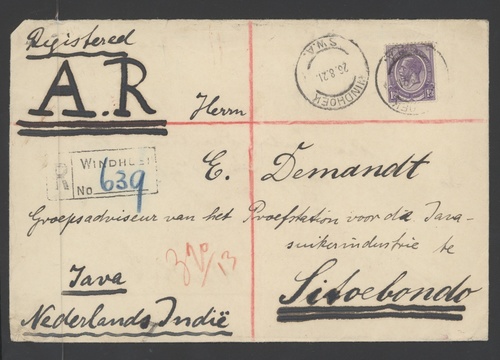 Registered
A.R
Herrn
WINDHOEK
26.8.21.
S.W.A.
WINDHOEK
No 639
E. Demandt
Groepsadviseur van het Proefstation voor de Java-
suikerindustrie te
Sitoebondo
Java
Nederlands Indië